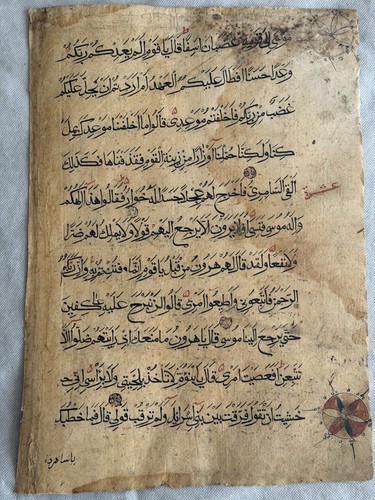 موسى إلى قومه غضبان اسفا قال يا قوم الم يعدكم ربكم
وعدا حسنا افطال عليكم العهد ام اردتم ان يحل عليكم
غضب من ربكم فاخلفتم موعدي قالوا ما اخلفنا موعدك بمل
كنا ولكنا حملنا اوزارا من زينة القوم فقذفناها فكذلك
القى السامري فاخرج لهم عجلا جسدا له خوار فقالوا هذا الهكم
عشر
واله موسى فنسي افلا يرون الا يرجع اليهم قولا ولا يملك لهم ضرا
ولا نفعا ولقد قال لهم هرون من قبل يا قوم انما فتنتم به وان ربكم
الرحمن فاتبعوني واطيعوا امري قالوا لن نبرح عليه عكفين
حتى يرجع الينا موسى قال يا هرون ما منعك اذ رايتهم ضلوا الا
تتبعن افعصيت امري قال يا بنؤم لا تاخذ بلحيتي ولا براسي اني
خشيت ان تقول فرقت بين بني اسرائل ولم ترقب قولي قال فما خطبك
يا سامري